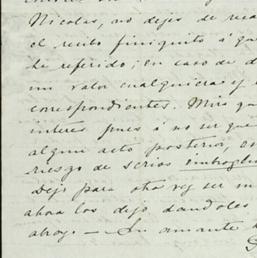 Nicolas, no dejes de rea
el recibo finiquito á qu
he referido; en caso de d
un valor cualquiera y
correspondientes. Mira qu
interes pues á no ser que
algun acto posterior, es
riesgo de serios embrollos
Dejo para otra vez ser m
ahora los dejo dandoles
abrazo — Su amante